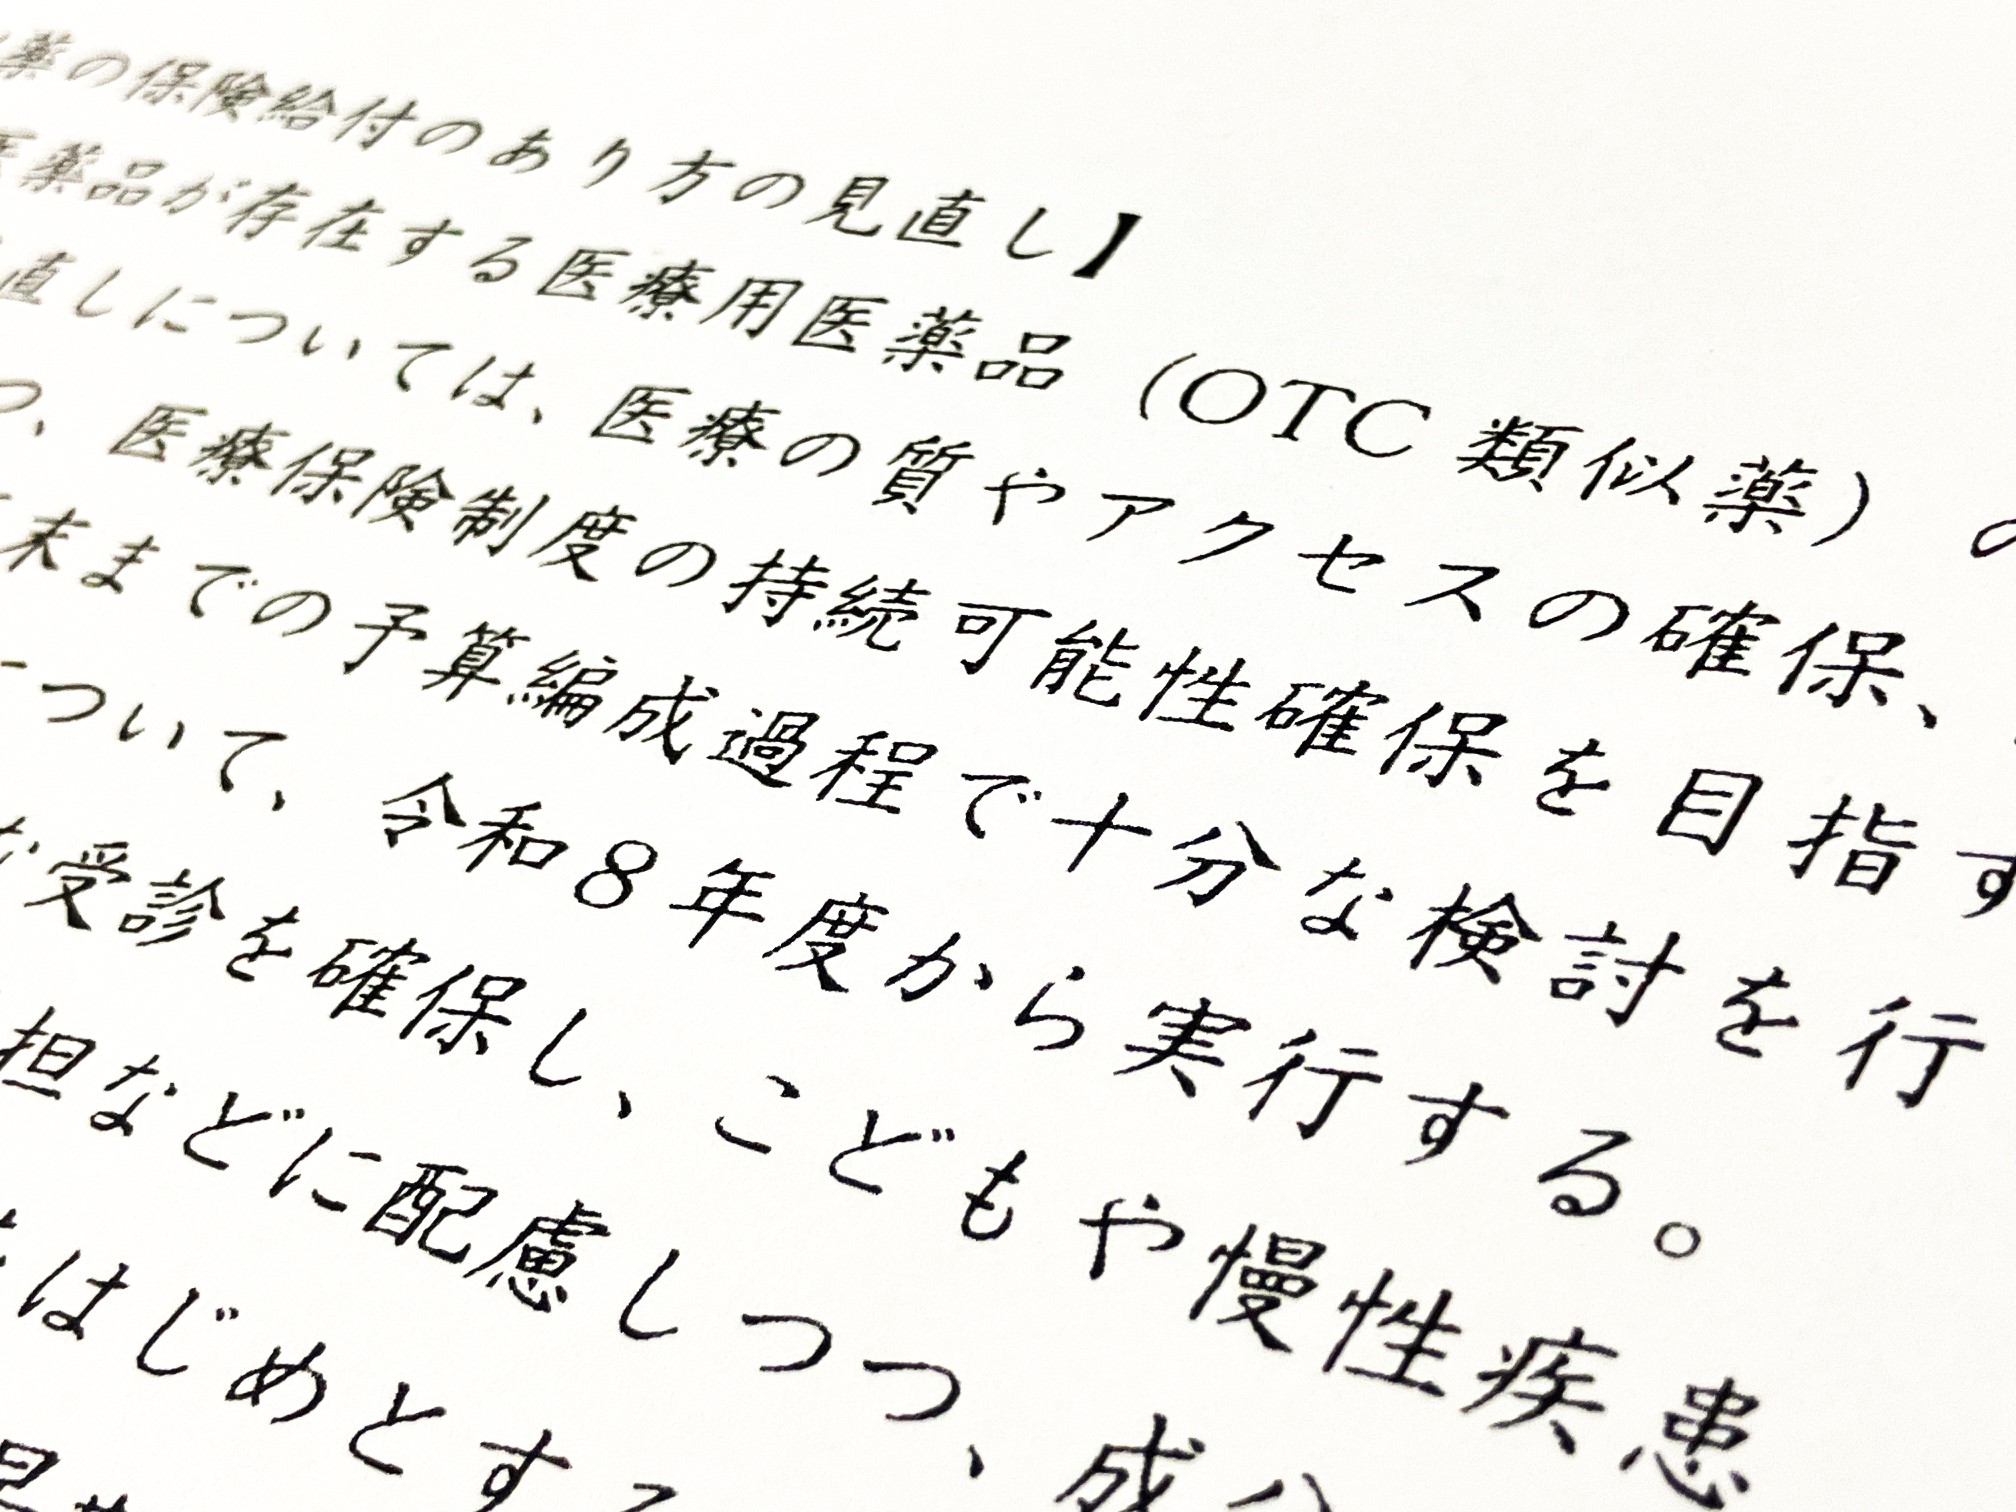 薬の保険給付のあり方の見直し】
医薬品が存在する医療用医薬品（OTC 類似薬）の
直しについては、医療の質やアクセスの確保、
つ、医療保険制度の持続可能性確保を目指す
末までの予算編成過程で十分な検討を行
ついて、令和８年度から実行する。
な受診を確保し、こどもや慢性疾患
担などに配慮しつつ、成分
はじめとする